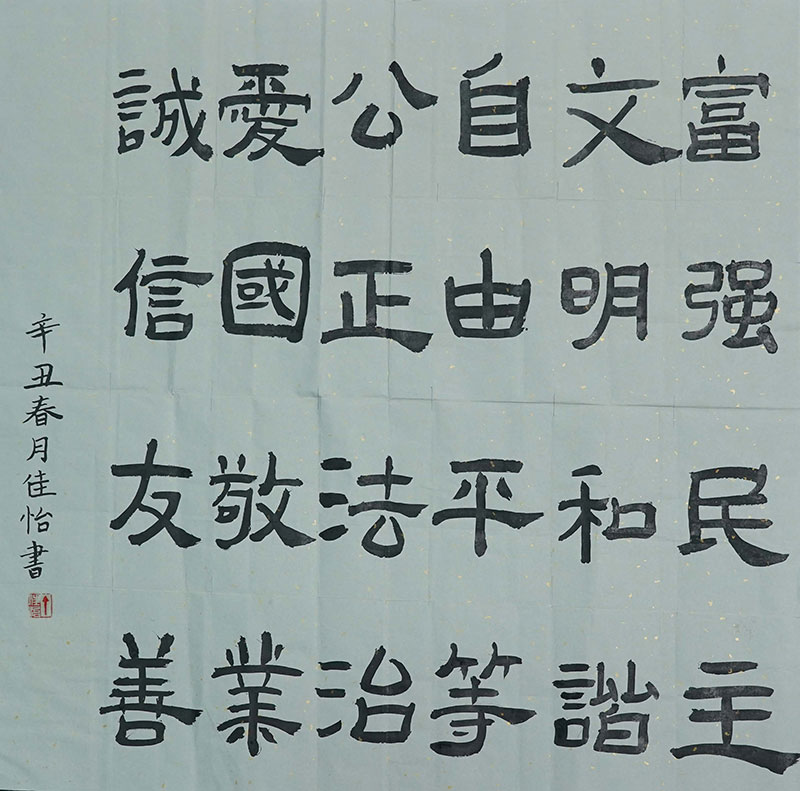 富强民主
文明和諧
自由平等
公正法治
愛國敬業
誠信友善
辛丑春月佳怡書